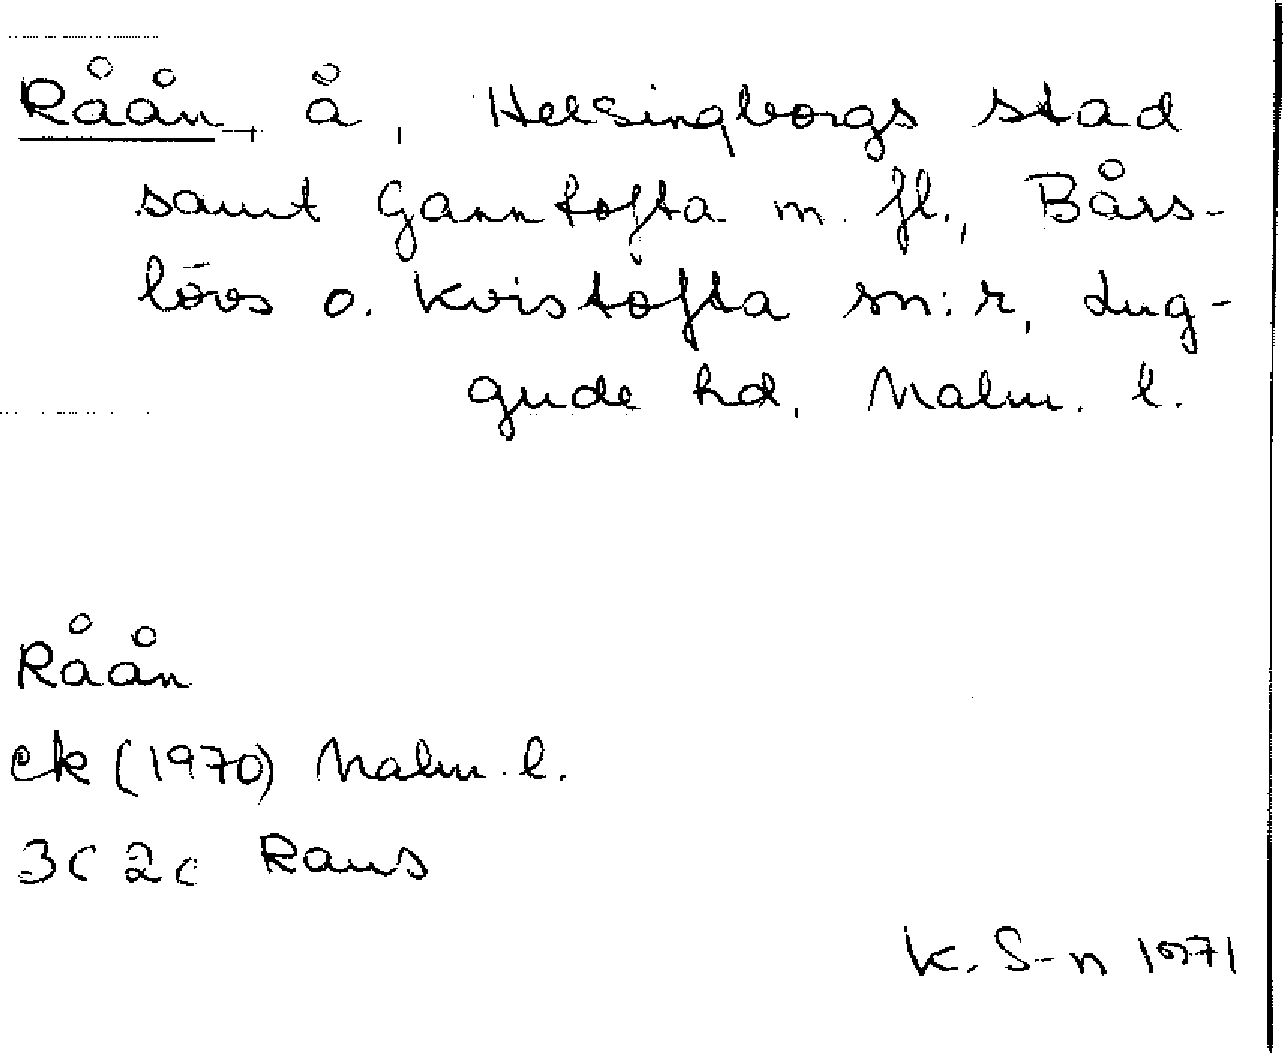 Råån, å, Helsingborgs stad
samt Gantofta m. fl., Bårs-
lövs o. Kvistofta sn:r, Lug-
gude hd, Malm. l.
Råån
ek (1970) Malm. l.
3C 2c Raus
K. S-n 1971